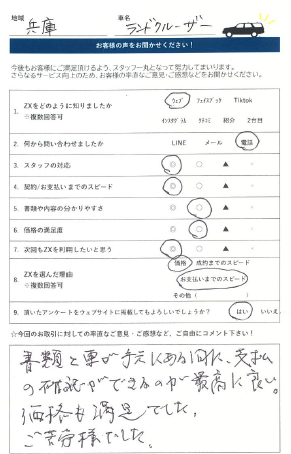 地域 兵庫 車名 ランドクルーザー
お客様の声をお聞かせください！
今後もお客様にご満足頂けるよう、スタッフ一丸となって努力してまいります。
さらなるサービス向上のため、お客様の率直なご意見・ご感想などをお聞かせください。
1. ZXをどのように知りましたか ※複数回答可 ウェブ フェイスブック Tiktok
インスタグラム クチコミ 紹介 2台目
2. 何から問い合わせましたか LINE メール 電話
3. スタッフの対応 ◎ ○ ▲
4. 契約/お支払いまでのスピード ◎ ○ ▲
5. 書類や内容の分かりやすさ ◎ ○ ▲
6. 価格の満足度 ◎ ○ ▲
7. 次回もZXを利用したいと思う ◎ ○ ▲
8. ZXを選んだ理由 ※複数回答可 価格 成約までのスピード
お支払いまでのスピード
その他（ ）
9. 頂いたアンケートをウェブサイトに掲載してもよろしいでしょうか？ はい いいえ
☆今回のお取引に対しての率直なご意見・ご感想など、ご自由にコメント下さい！
書類と車が手元にある内に、支払
の確認ができるのが最高に良い。
価格も満足でした。
ご苦労様でした。